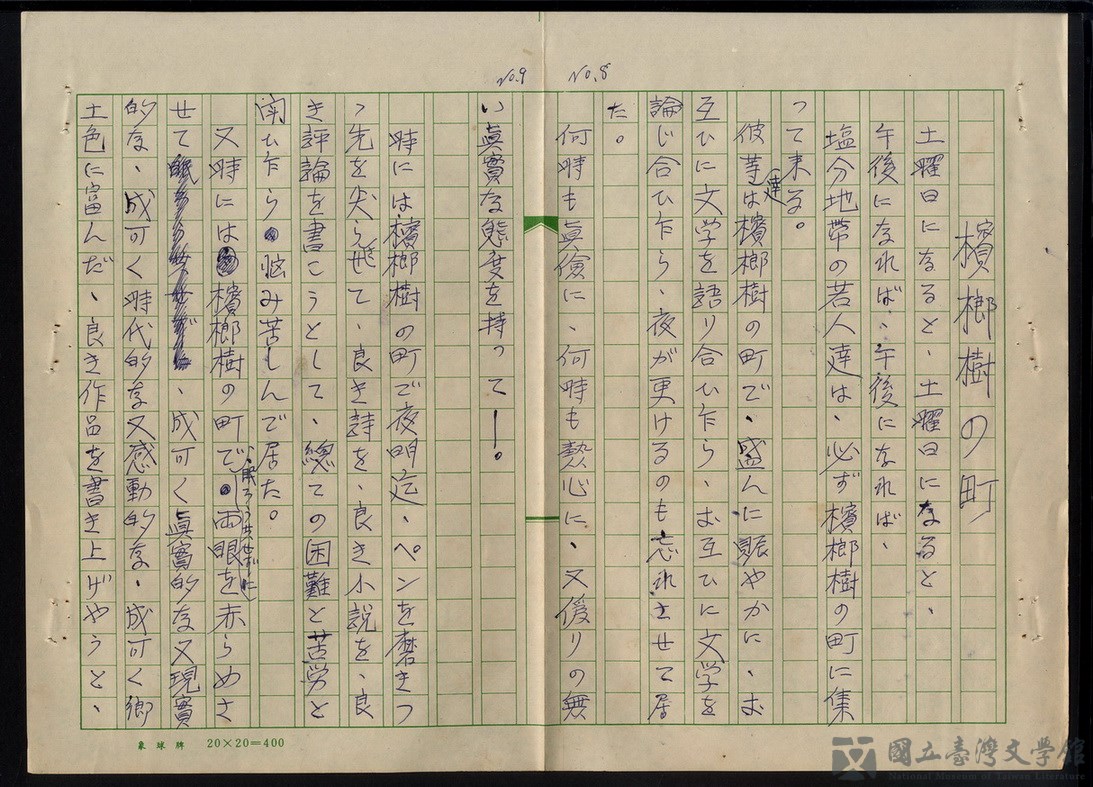 No.8
檳榔樹の町
土曜日になると、土曜日になると、
午後になれば、午後になれば、
塩分地帯の若人達は、必ず檳榔樹の町に集
って来る。
彼等達は檳榔樹の町で、盛んに賑やかに、お
互ひに文学を語り合ひ乍ら、お互ひに文学を
論じ合ひ乍ら、夜が更けるのも忘れさせて居
た。
何時も真倹に、何時も熱心に、又偽りの無
No.9
い眞實な態度を持って―。
時には檳榔樹の町で夜明迄、ペンを磨きつ
つ先を尖ら飛て、良き詩を、良き小説を、良
き評論を書こうとして、總ての困難と苦労と
闘ひ乍ら悩み苦しんで居た。
又時には檳榔樹の町で、眠ろうせずに両眼を赤らめさ
せて、成可く眞實的な又現實
的な、成可く時代的な又感動的な、成可く郷
土色に富んだ、良き作品を書き上げやうと、
象球牌 20×20=400
國立臺灣文學館
National Museum of Taiwan Literature